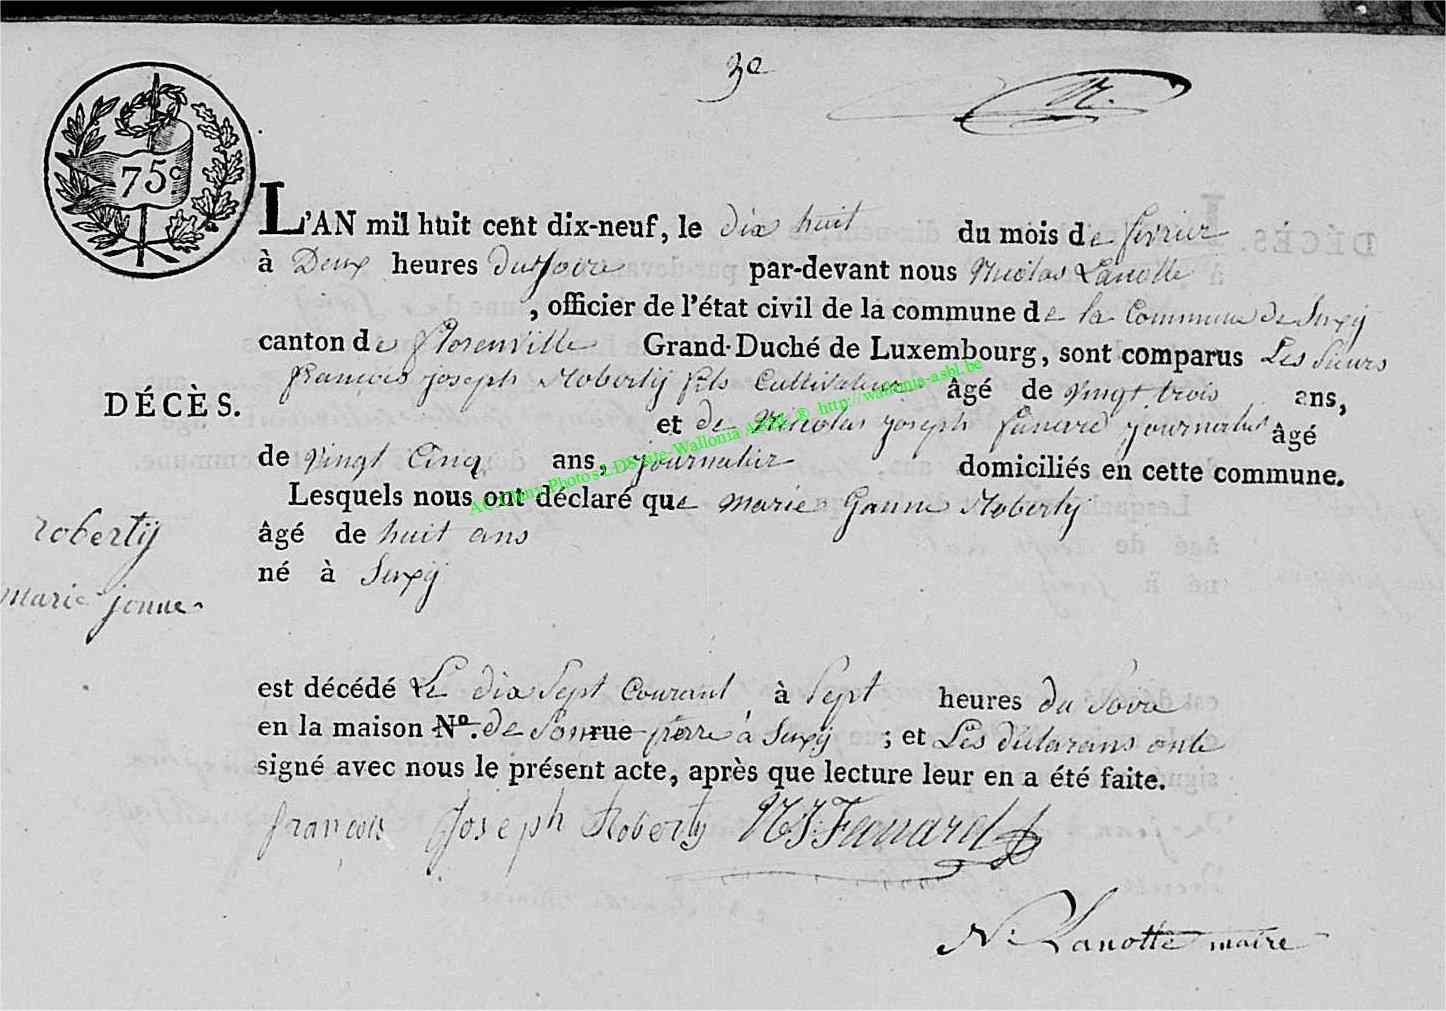 3e
75.c
L'AN mil huit cent dix-neuf, le dix huit du mois de fevrier
à Deux heures du Soire par-devant nous Nicolas Lanotte
, officier de l'état civil de la commune de la Commune de Suxÿ
canton de Florenville Grand-Duché de Luxembourg, sont comparus Les Sieurs
françois joseph Robertÿ fils Cultivateur âgé de vingt trois ans,
DÉCÈS.
et de Nicolas joseph journalier âgé
de vingt Cinq ans, journalier domiciliés en cette commune.
Lesquels nous ont déclaré que marie Ganne Robertÿ
robertÿ
marie jonne
âgé de huit ans
né à Suxÿ
est décédé Le dix Sept Courant à Sept heures du Soire
en la maison No. de Son rue perre à Suxÿ ; et Les déclarans onte
signé avec nous le présent acte, après que lecture leur en a été faite.
françois Joseph Roberty NJ:
N: Lanotte maire
AC Harry Photos LDS site-Wallonia ASBL ® http://wallonia-asbl.be